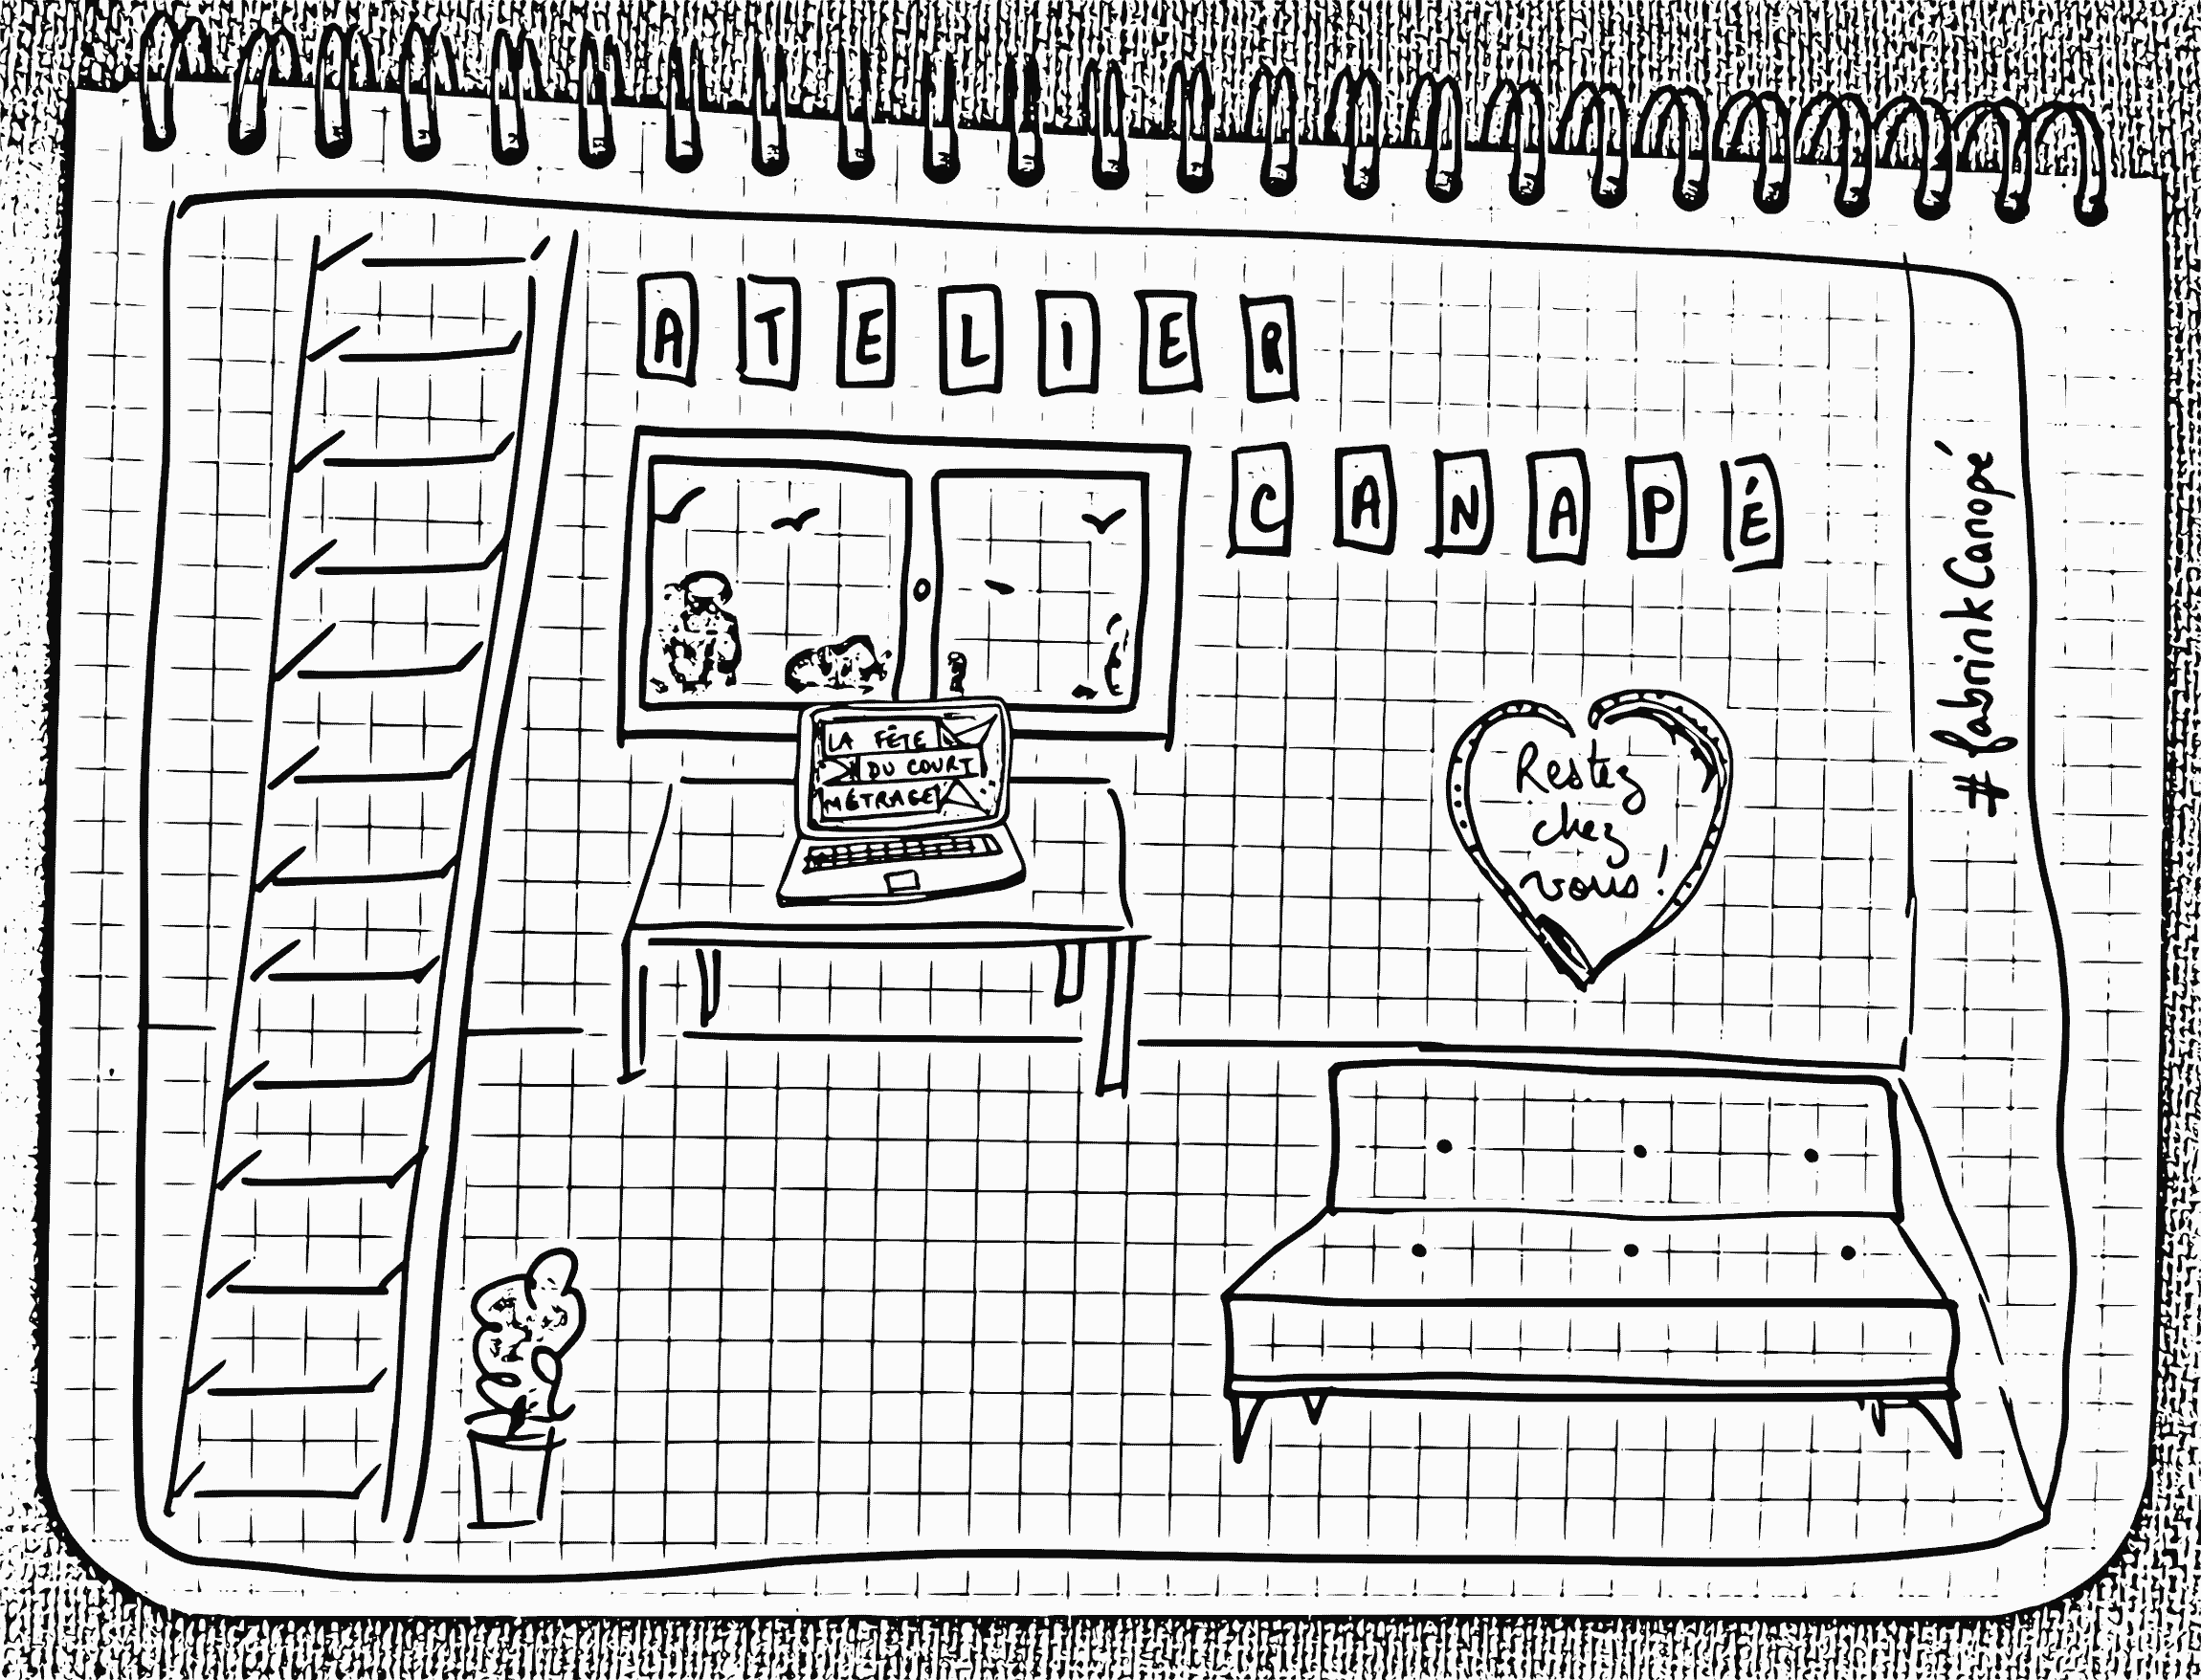 ATELIER
CANAPÉ
LA FÊTE
DU COURT
MÉTRAGE
Restez
chez
vous !
#fabrinkCanopé